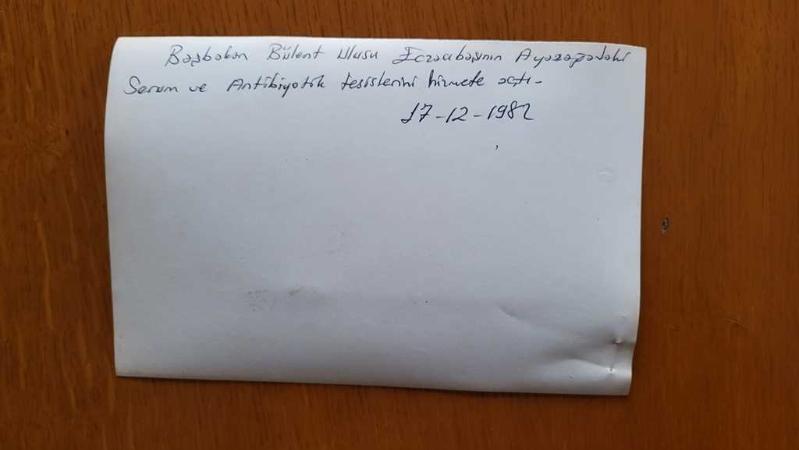 Başbakan Bülent Ulusu Eczacıbaşının Ayazağadaki
Serum ve Antibiyotik tesislerini hizmete açtı-
17-12-1982